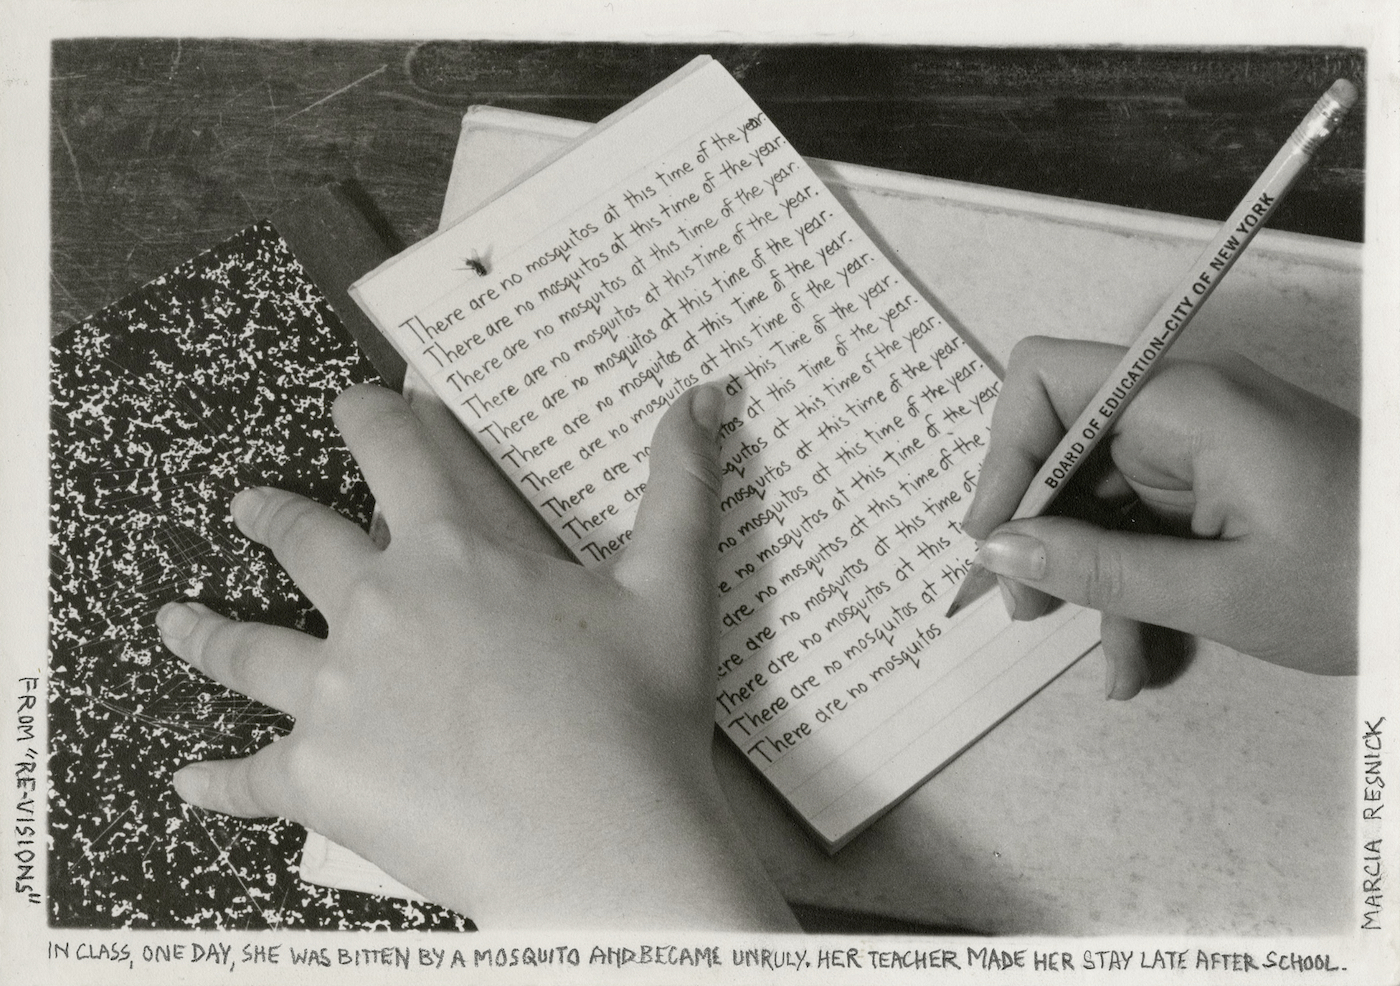 There are no mosquitos at this time of the year.
There are no mosquitos at this time of the year.
There are no mosquitos at this time of the year.
There are no mosquitos at this time of the year.
There are no mosquitos at this time of the year.
There are no mosquitos at this time of the year.
There are no mosquitos at this time of the year.
There are no at this time of the year.
There are tos at this time of the year.
There squitos at this time of the year.
mosquitos at this time of the year.
no mosquitos at this time of the year.
e no mosquitos at this time of the year
are no mosquitos at this time of the
ere are no mosquitos at this time of
There are no mosquitos at this t
There are no mosquitos at this
There are no mosquitos
BOARD OF EDUCATION–CITY OF NEW YORK
FROM "RE-VISIONS"
MARCIA RESNICK
IN CLASS, ONE DAY, SHE WAS BITTEN BY A MOSQUITO AND BECAME UNRULY. HER TEACHER MADE HER STAY LATE AFTER SCHOOL.